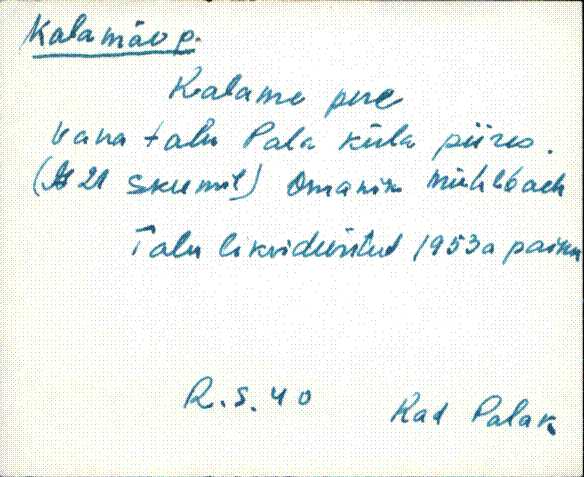 Kalamäe p.
Kalame pere
Vana talu Pala küla piires.
(№ 21 skeemil) Omanik Mühlbach
Talu likvideeritud 1953a paiku
R.S. 40
Kad Palak